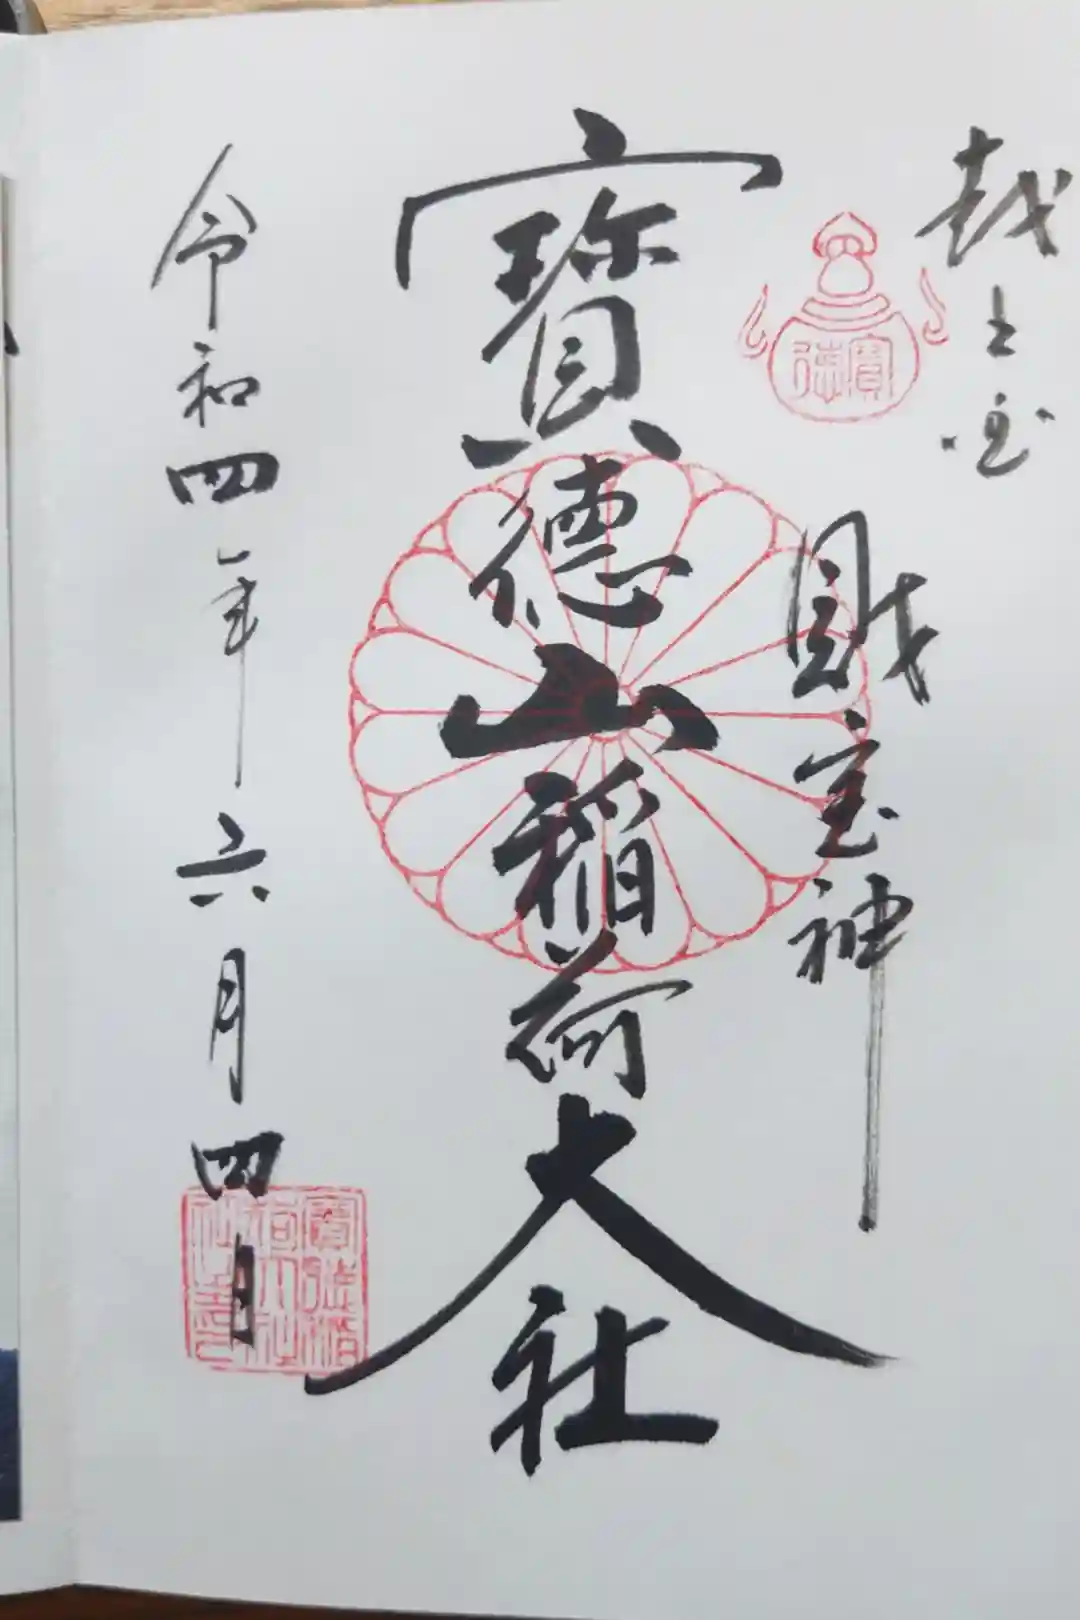 越
寶徳
財宝神
寶德山稲荷大社
令和四年六月四日